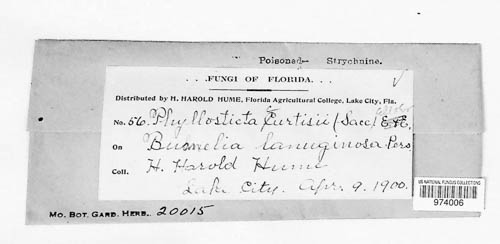 Poisoned— Strychnine.
. . .FUNGI OF FLORIDA. . .
Distributed by H. HAROLD HUME, Florida Agricultural College, Lake City, Fla.
No. 56. Phyllosticta Curtisii (Sacc) E. & E.
On Bumelia lanuginosa Pers
Coll. H. Harold Hume
Lake City. Apr. 9. 1900.
US NATIONAL FUNGUS COLLECTIONS
974006
MO. BOT. GARD. HERB. 20015